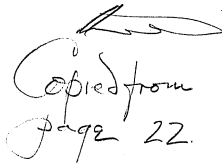 Copied from
page 22.